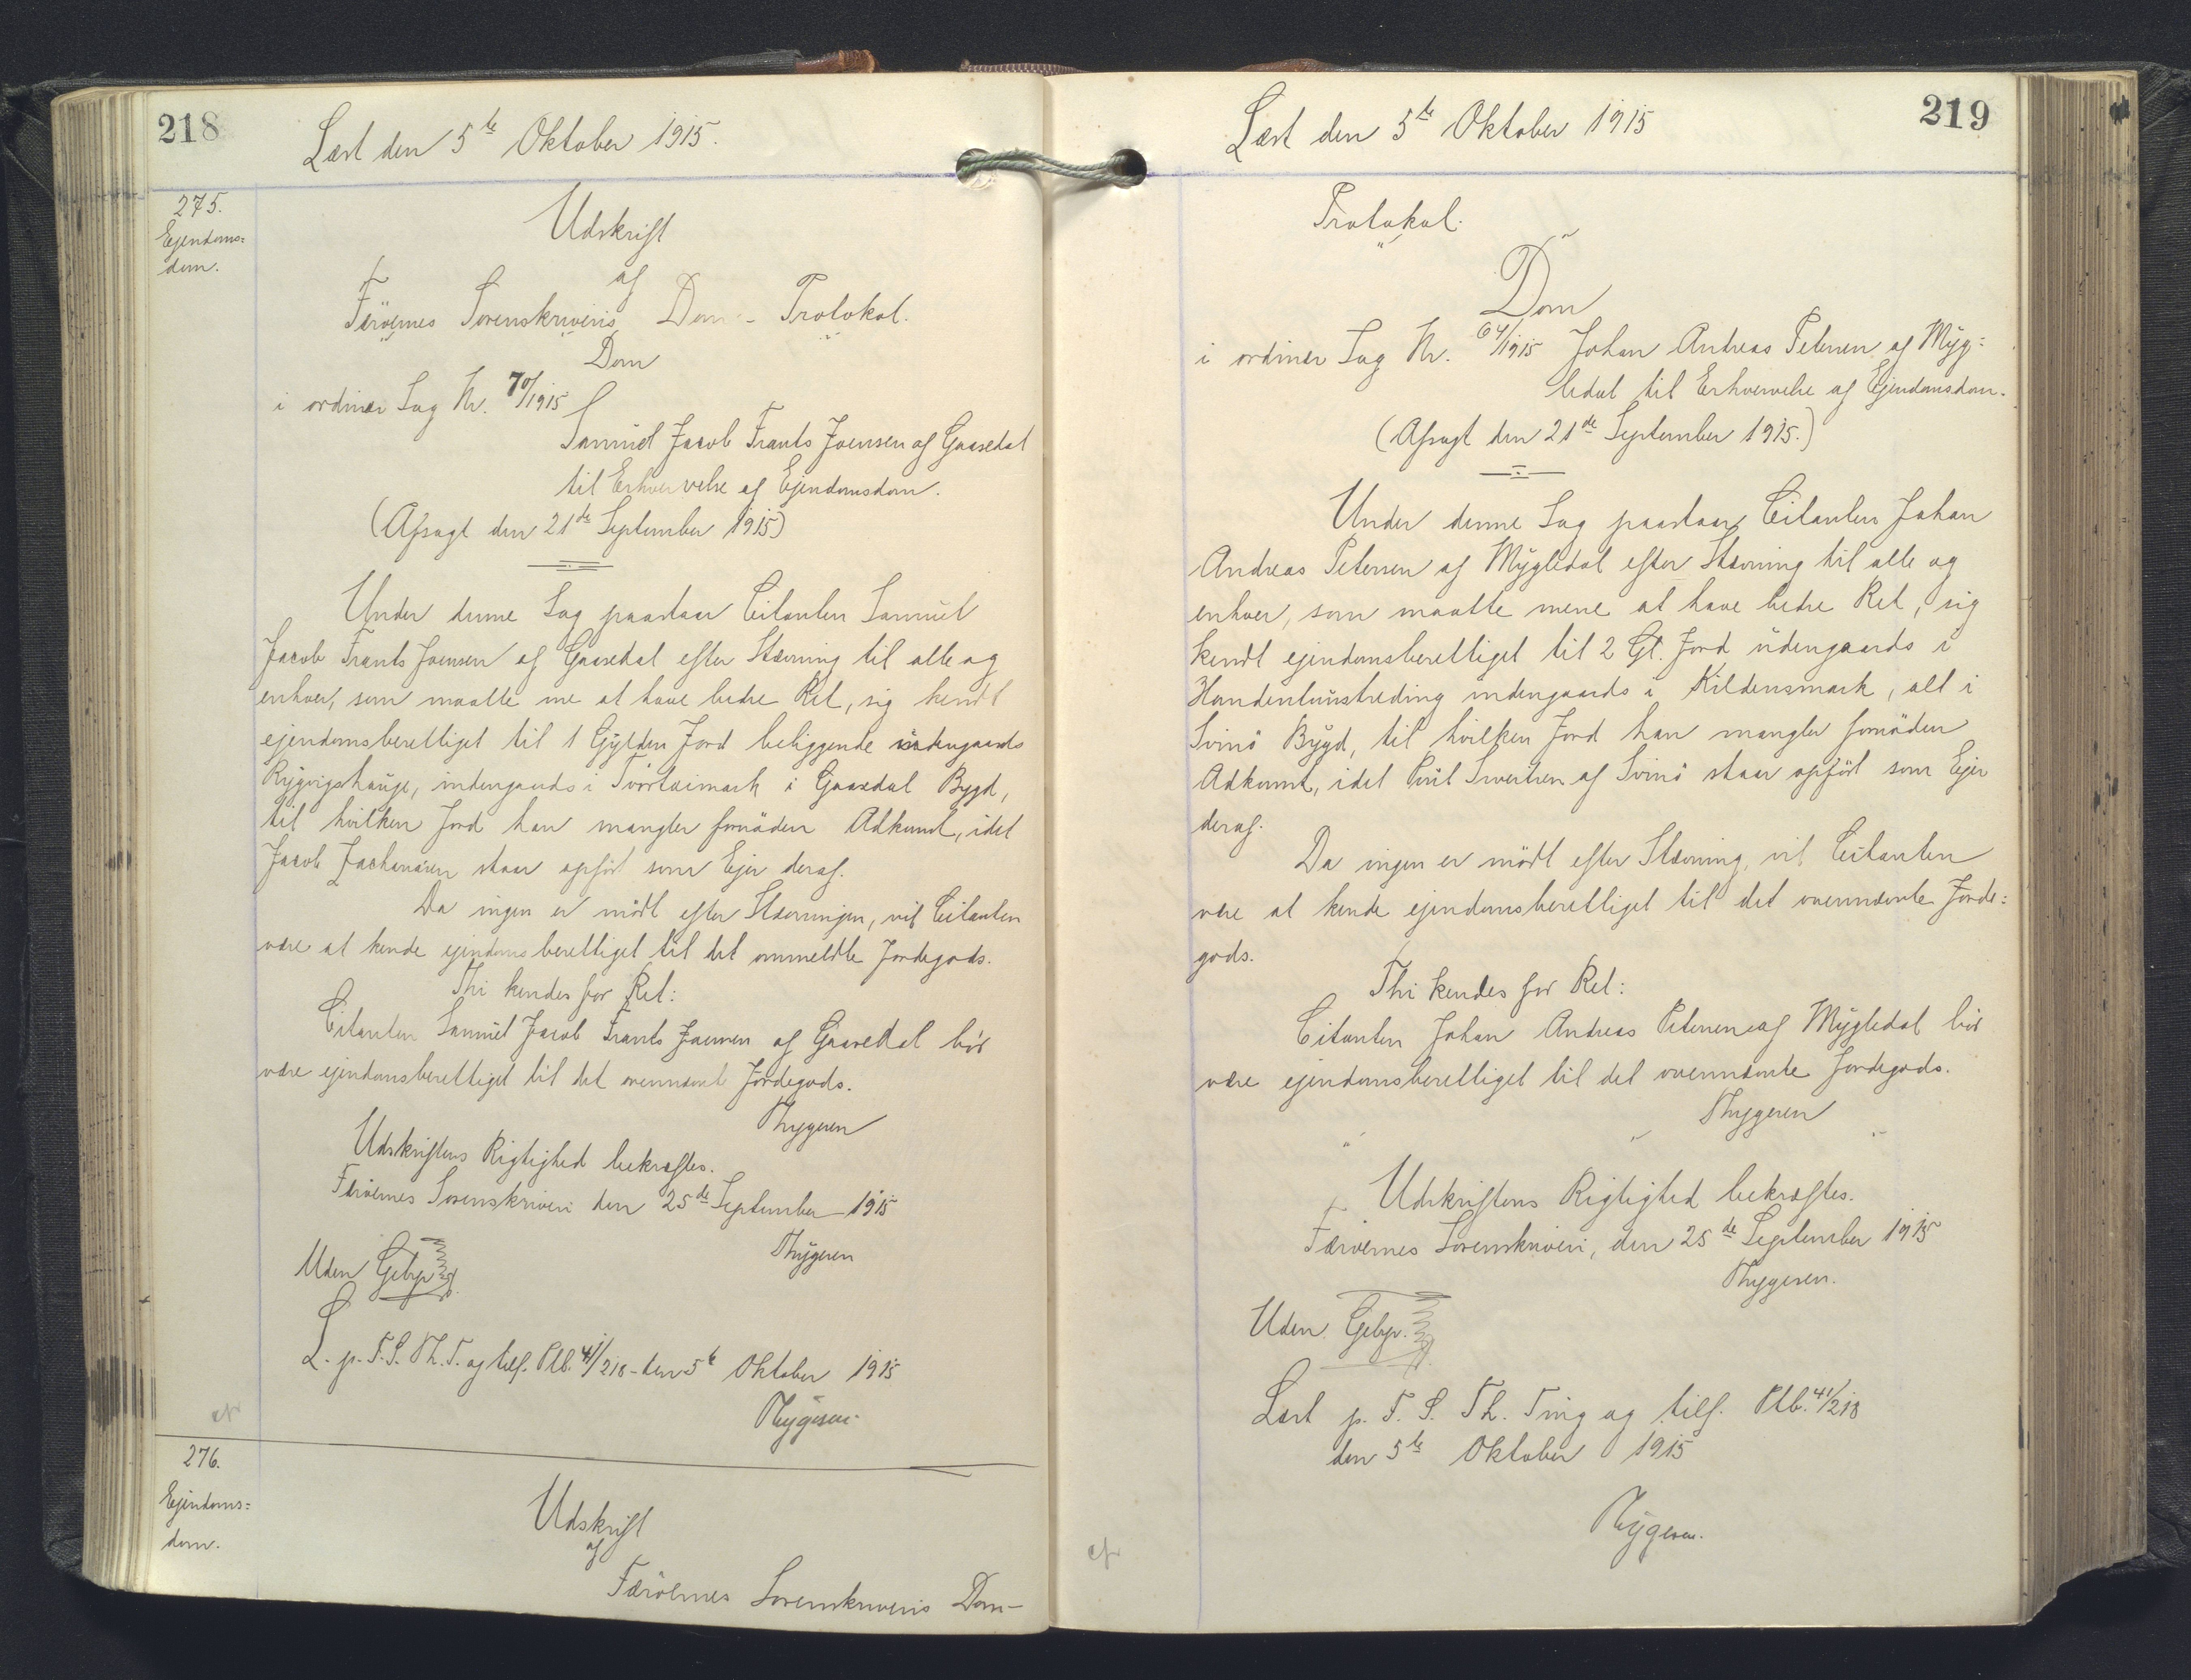 218
Læst den 5te Oktober 1915.
275.
Ejendoms=
dom.
Udskrift
af
Færöernes Sorenskriveris Dom - Protokol.
Dom
i ordinær Sag Nr. 70/1915
Samuel Jacob Frants Joensen af Gaasedal
til Erhvervelse af Ejendomsdom.
(Afsagt den 21de September 1915)
Under denne Sag paastaar Citanten Samuel
Jacob Frants Joensen af Gaasedal efter Stævning til alle og
enhver, som maatte me at have bedre Ret, sig kendt
ejendomsberettiget til 1 Gylden Jord beliggende udengaards
indengaards i i Gaasedal Bygd,
til hvilken Jord han mangler fornöden Adkomst, idet
Jacob Zachariasen staar opfört som Ejer deraf.
Da ingen er mödt efter Stævningen, vil Citanten
være at kende ejendomsberettiget til det ommeldte Jordegods.
Thi kendes for Ret:
Citanten Samuel Jacob Frants Joensen af Gaasedal bör
være ejendomsberettiget til det ovennævnte Jordegods.
Thygesen
Udskriftens Rigtighed bekræftes.
Færöernes Sorenskriveri den 25de September 1915
Thygesen
Uden Gebyr
L. p. F. S. Th. T. og tilf. Ptb. 41/218 - den 5te Oktober 1915
Thygesen.
cfr
276.
Ejendoms=
dom.
Udskrift
af
Færöernes Sorenskriveris Dom-
219
Læst den 5te Oktober 1915
Protokol.
Dom
i ordinær Sag Nr. 64/1915 Johan Andreas Petersen af Myg=
ledal til Erhvervelse af Ejendomsdom.
(Afsagt den 21de September 1915.)
Under denne Sag paastaar Citanten Johan
Andreas Petersen af Mygledal efter Stævning til alle og
enhver, som maatte mene at have bedre Ret, sig
kendt ejendomsberettiget til 2 Gl. Jord udengaards i
indengaards i Kildensmark, alt i
Svinö Bygd, til hvilken Jord han mangler fornöden
Adkomst, idet Poul Sivertsen af Svinö staar opfört som Ejer
deraf.
Da ingen er mödt efter Stævning, vil Citanten
være at kende ejendomsberettiget til det ovennævnte Jorde=
gods.
Thi kendes for Ret:
Citanten Johan Andreas Petersen af Mygledal bör
være ejendomsberettiget til det ovennævnte Jordegods.
Thygesen
Udskriftens Rigtighed bekræftes.
Færöernes Sorenskriveri, den 25de September 1915
Thygesen.
Uden Gebyr.
Læst p. F. S. Th. Ting og tilf. Ptb. 41/218
den 5te Oktober 1915
Thygesen.
cfr